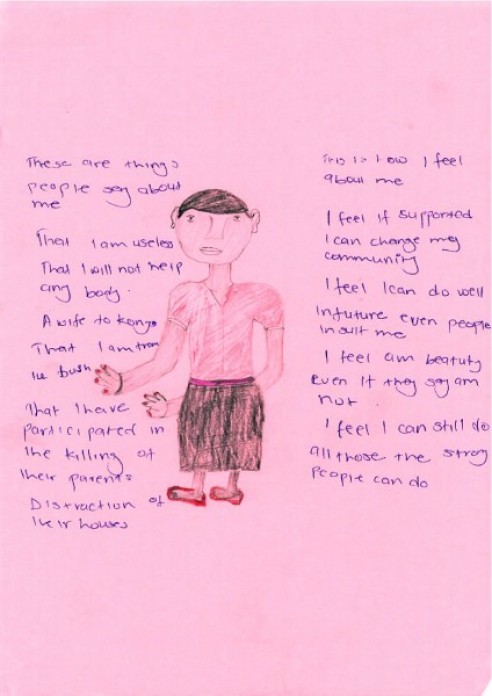 These are things
people say about
me
That I am useless
That I will not help
any body.
A wife to Konyo
That I am from
the bush
That I have
participated in
the killing of
their parents
Distraction of
their houses
This is how I feel
about me
I feel if supported
I can change my
community
I feel I can do well
in future even people
insult me
I feel am beatuty
even if they say am
not
I feel I can still do
all those the strong
people can do